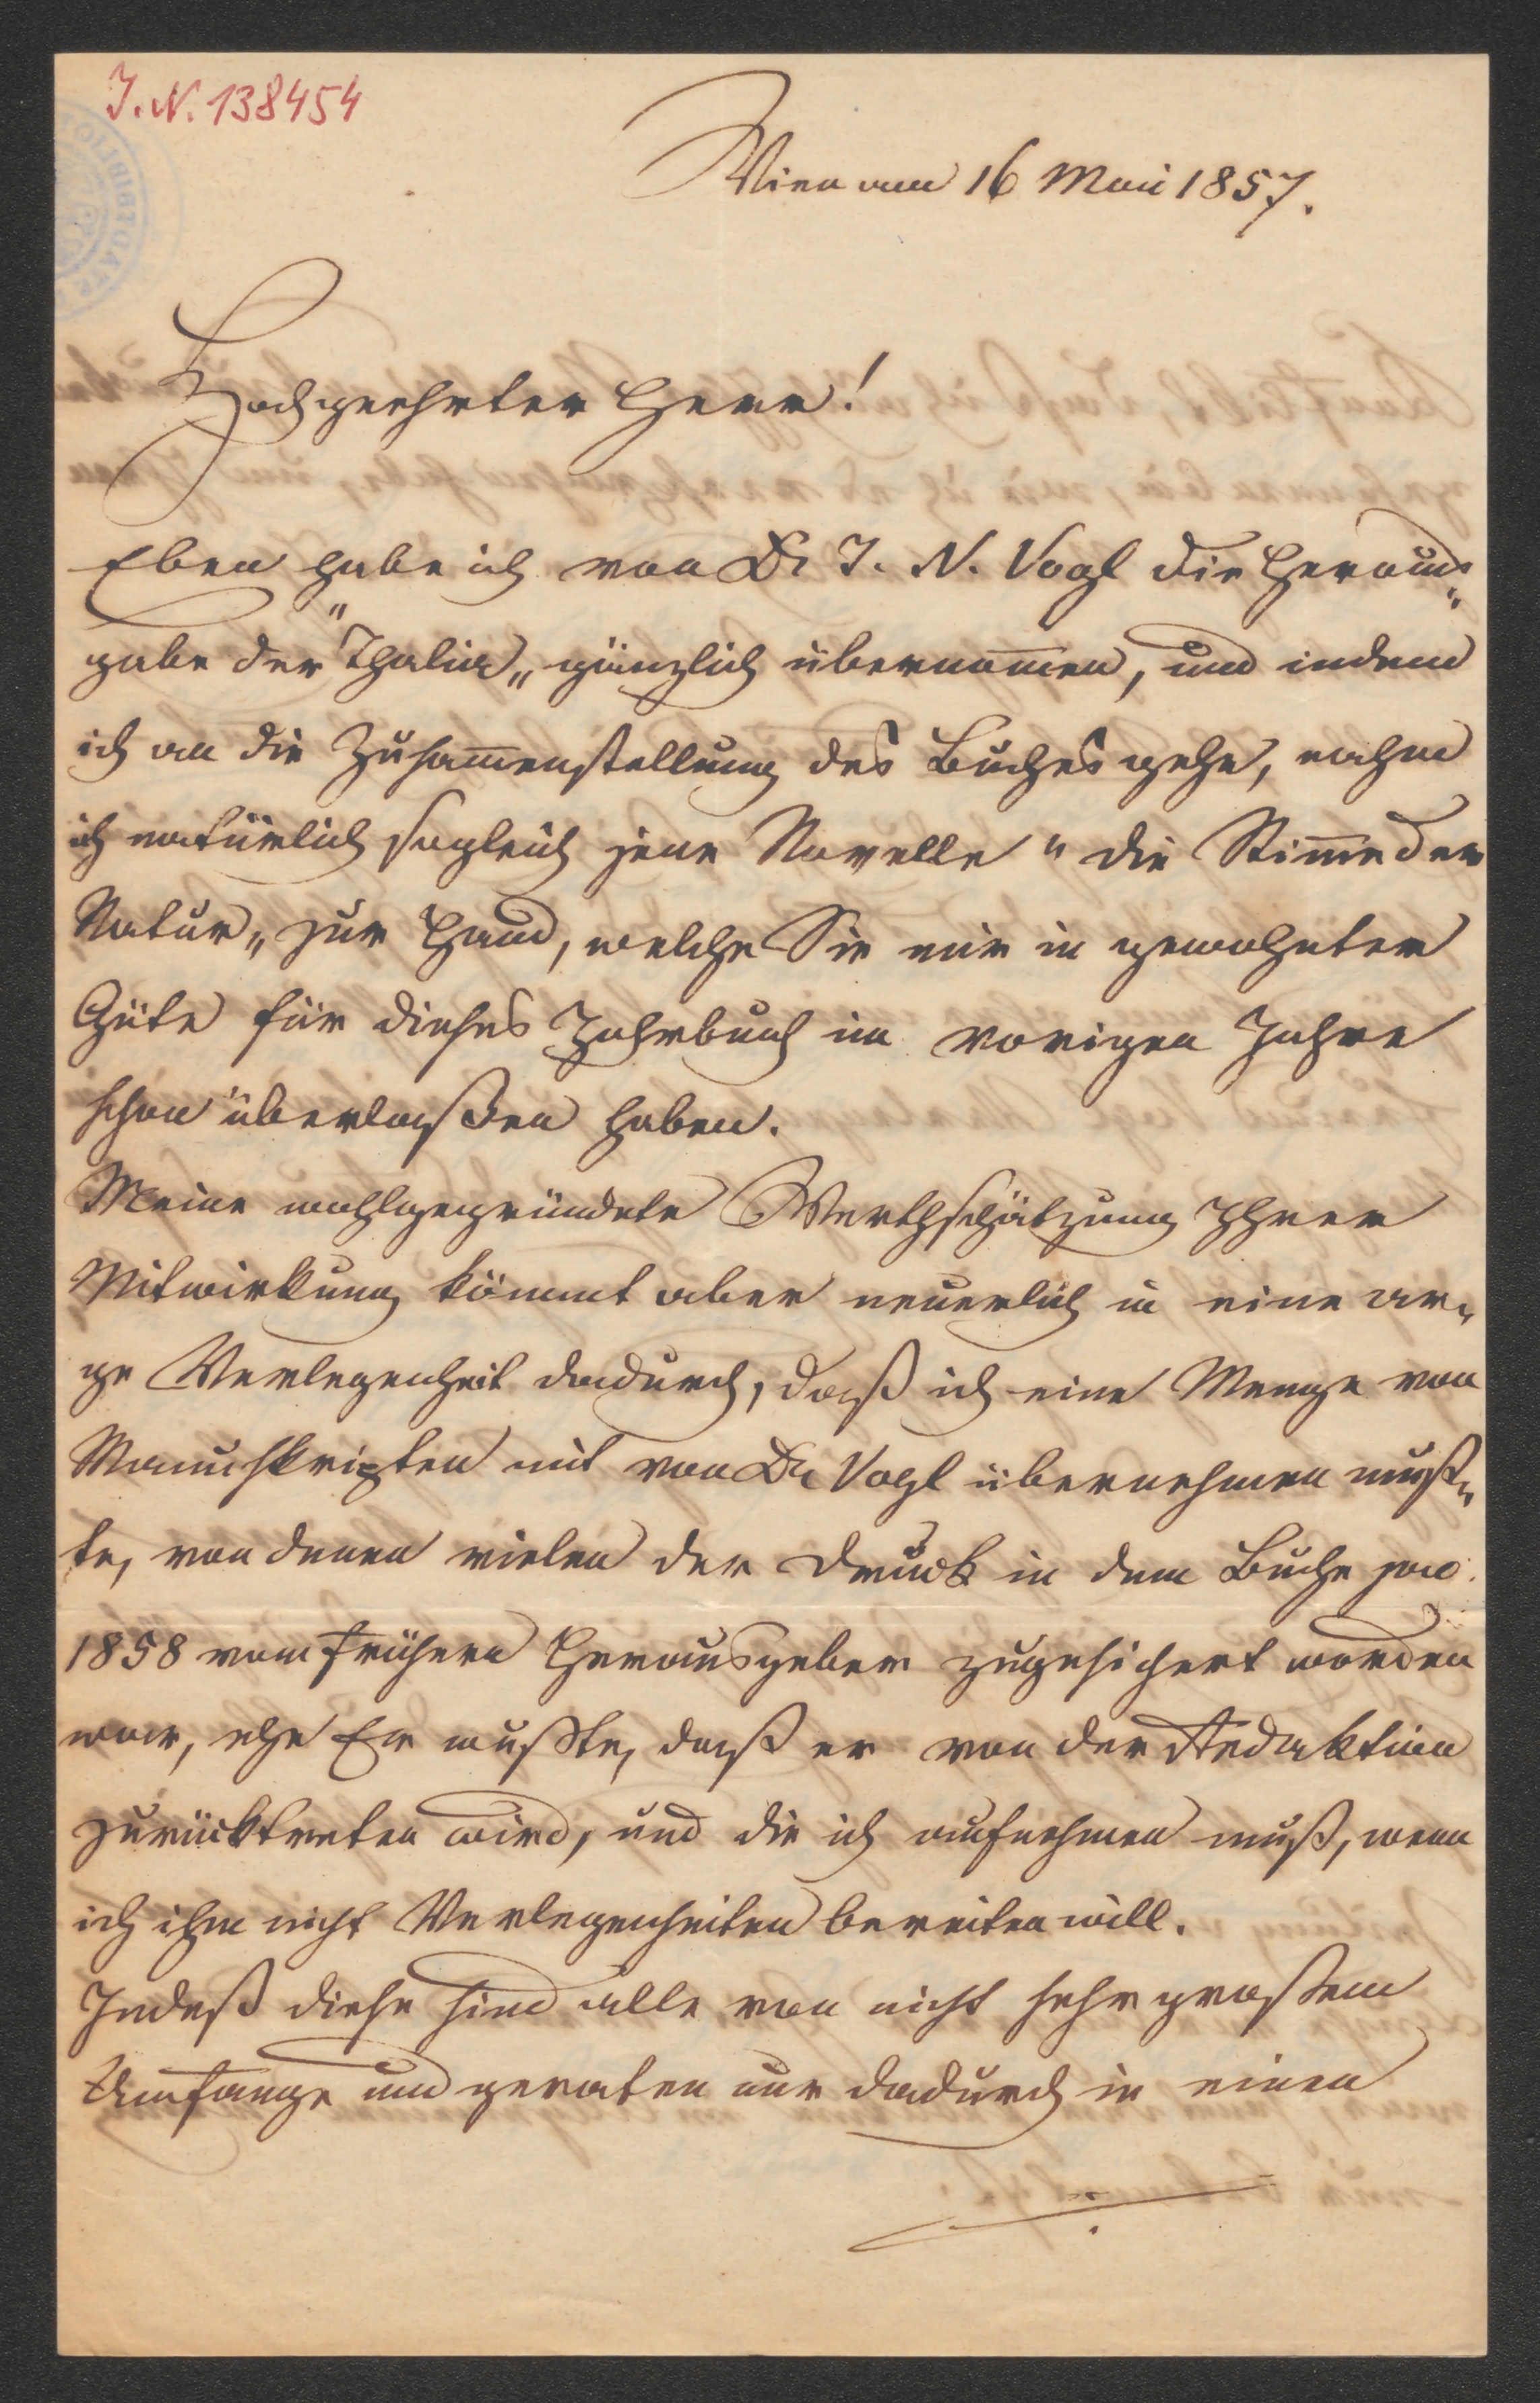 I. N. 138454
Wien am 16 Mai 1857.
Hochgeehrter Herr!
Eben habe ich von Dr J. N. Vogl die Heraus„
gabe der "Thalia„ gänzlich übernom̅en, und indem
ich an die Zusam̅enstellung des Buches gehe, nahm
ich natürlich sogleich jene Novelle "die Stim̅e der
Natur„ zur Hand, welche Sie mir in gewohnter
Güte für dieses Jahrbuch im vorigen Jahre
schon überlaßen haben.
Meine wohlgegründete Werthschätzung Ihrer
Mitwirkung kömmt aber neuerlich in eine ar„
ge Verlegenheit dadurch, daß ich eine Menge von
Manuskripten mit von Dr Vogl übernehmen muß„
te, von denen vielen der Druck in dem Buche pro
1858 vom frühern Herausgeber zugesichert worden
war, ehe Er wußte, daß er von der Redaktion
zurücktreten wird, und die ich aufnehmen muß, wenn
ich ihm nicht Verlegenheiten bereiten will.
Indeß diese sind alle von nicht sehr großem
Umfange und geraten nur dadurch in einen